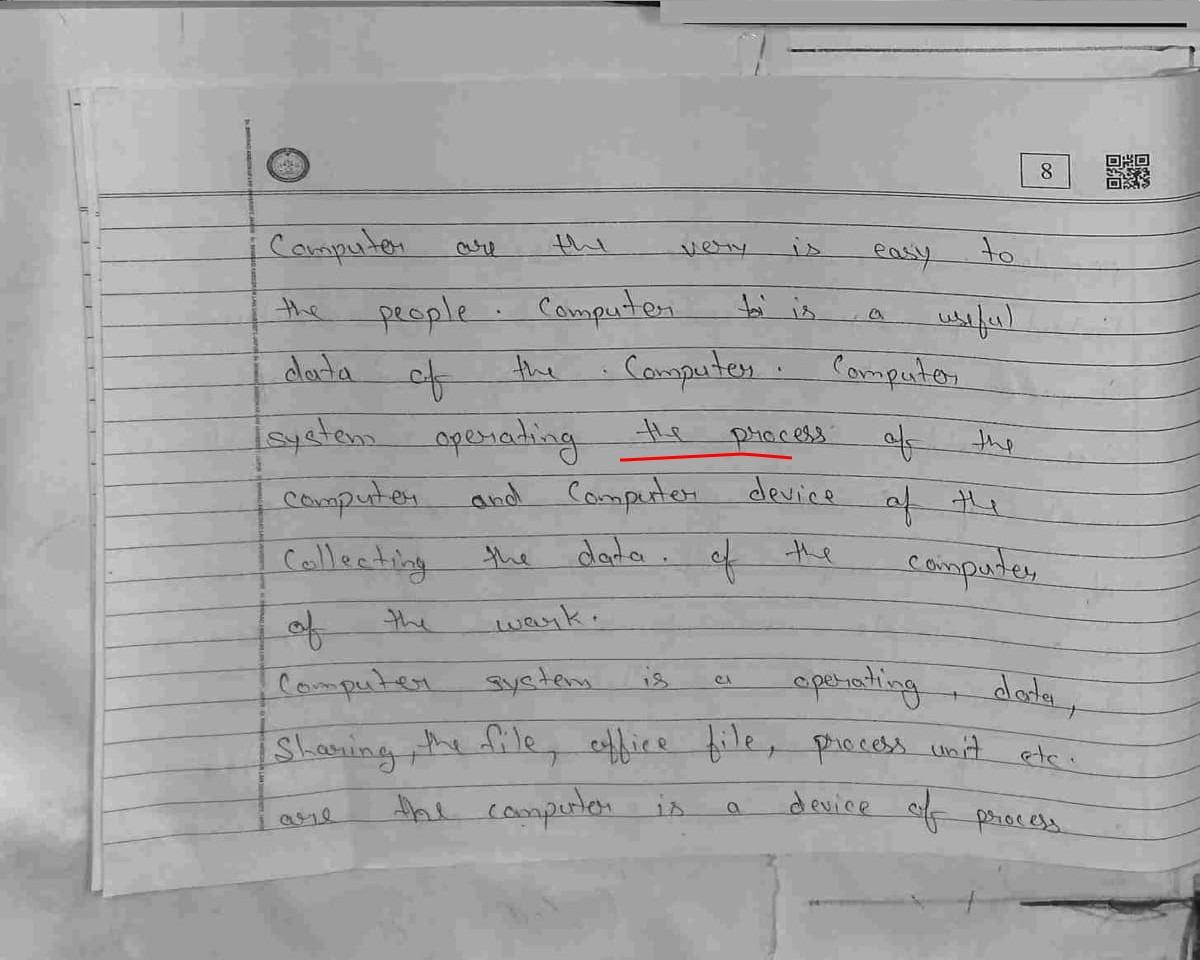 8
Computer are the very is easy to
the people. Computer is a useful
data of the Computer. Computer
system operating the process of the
computer and Computer device of the
Collecting the data. of the computer
of the work.
Computer system is a operating, data,
Sharing, the file, office file, process unit etc.
are the computer is a device of process